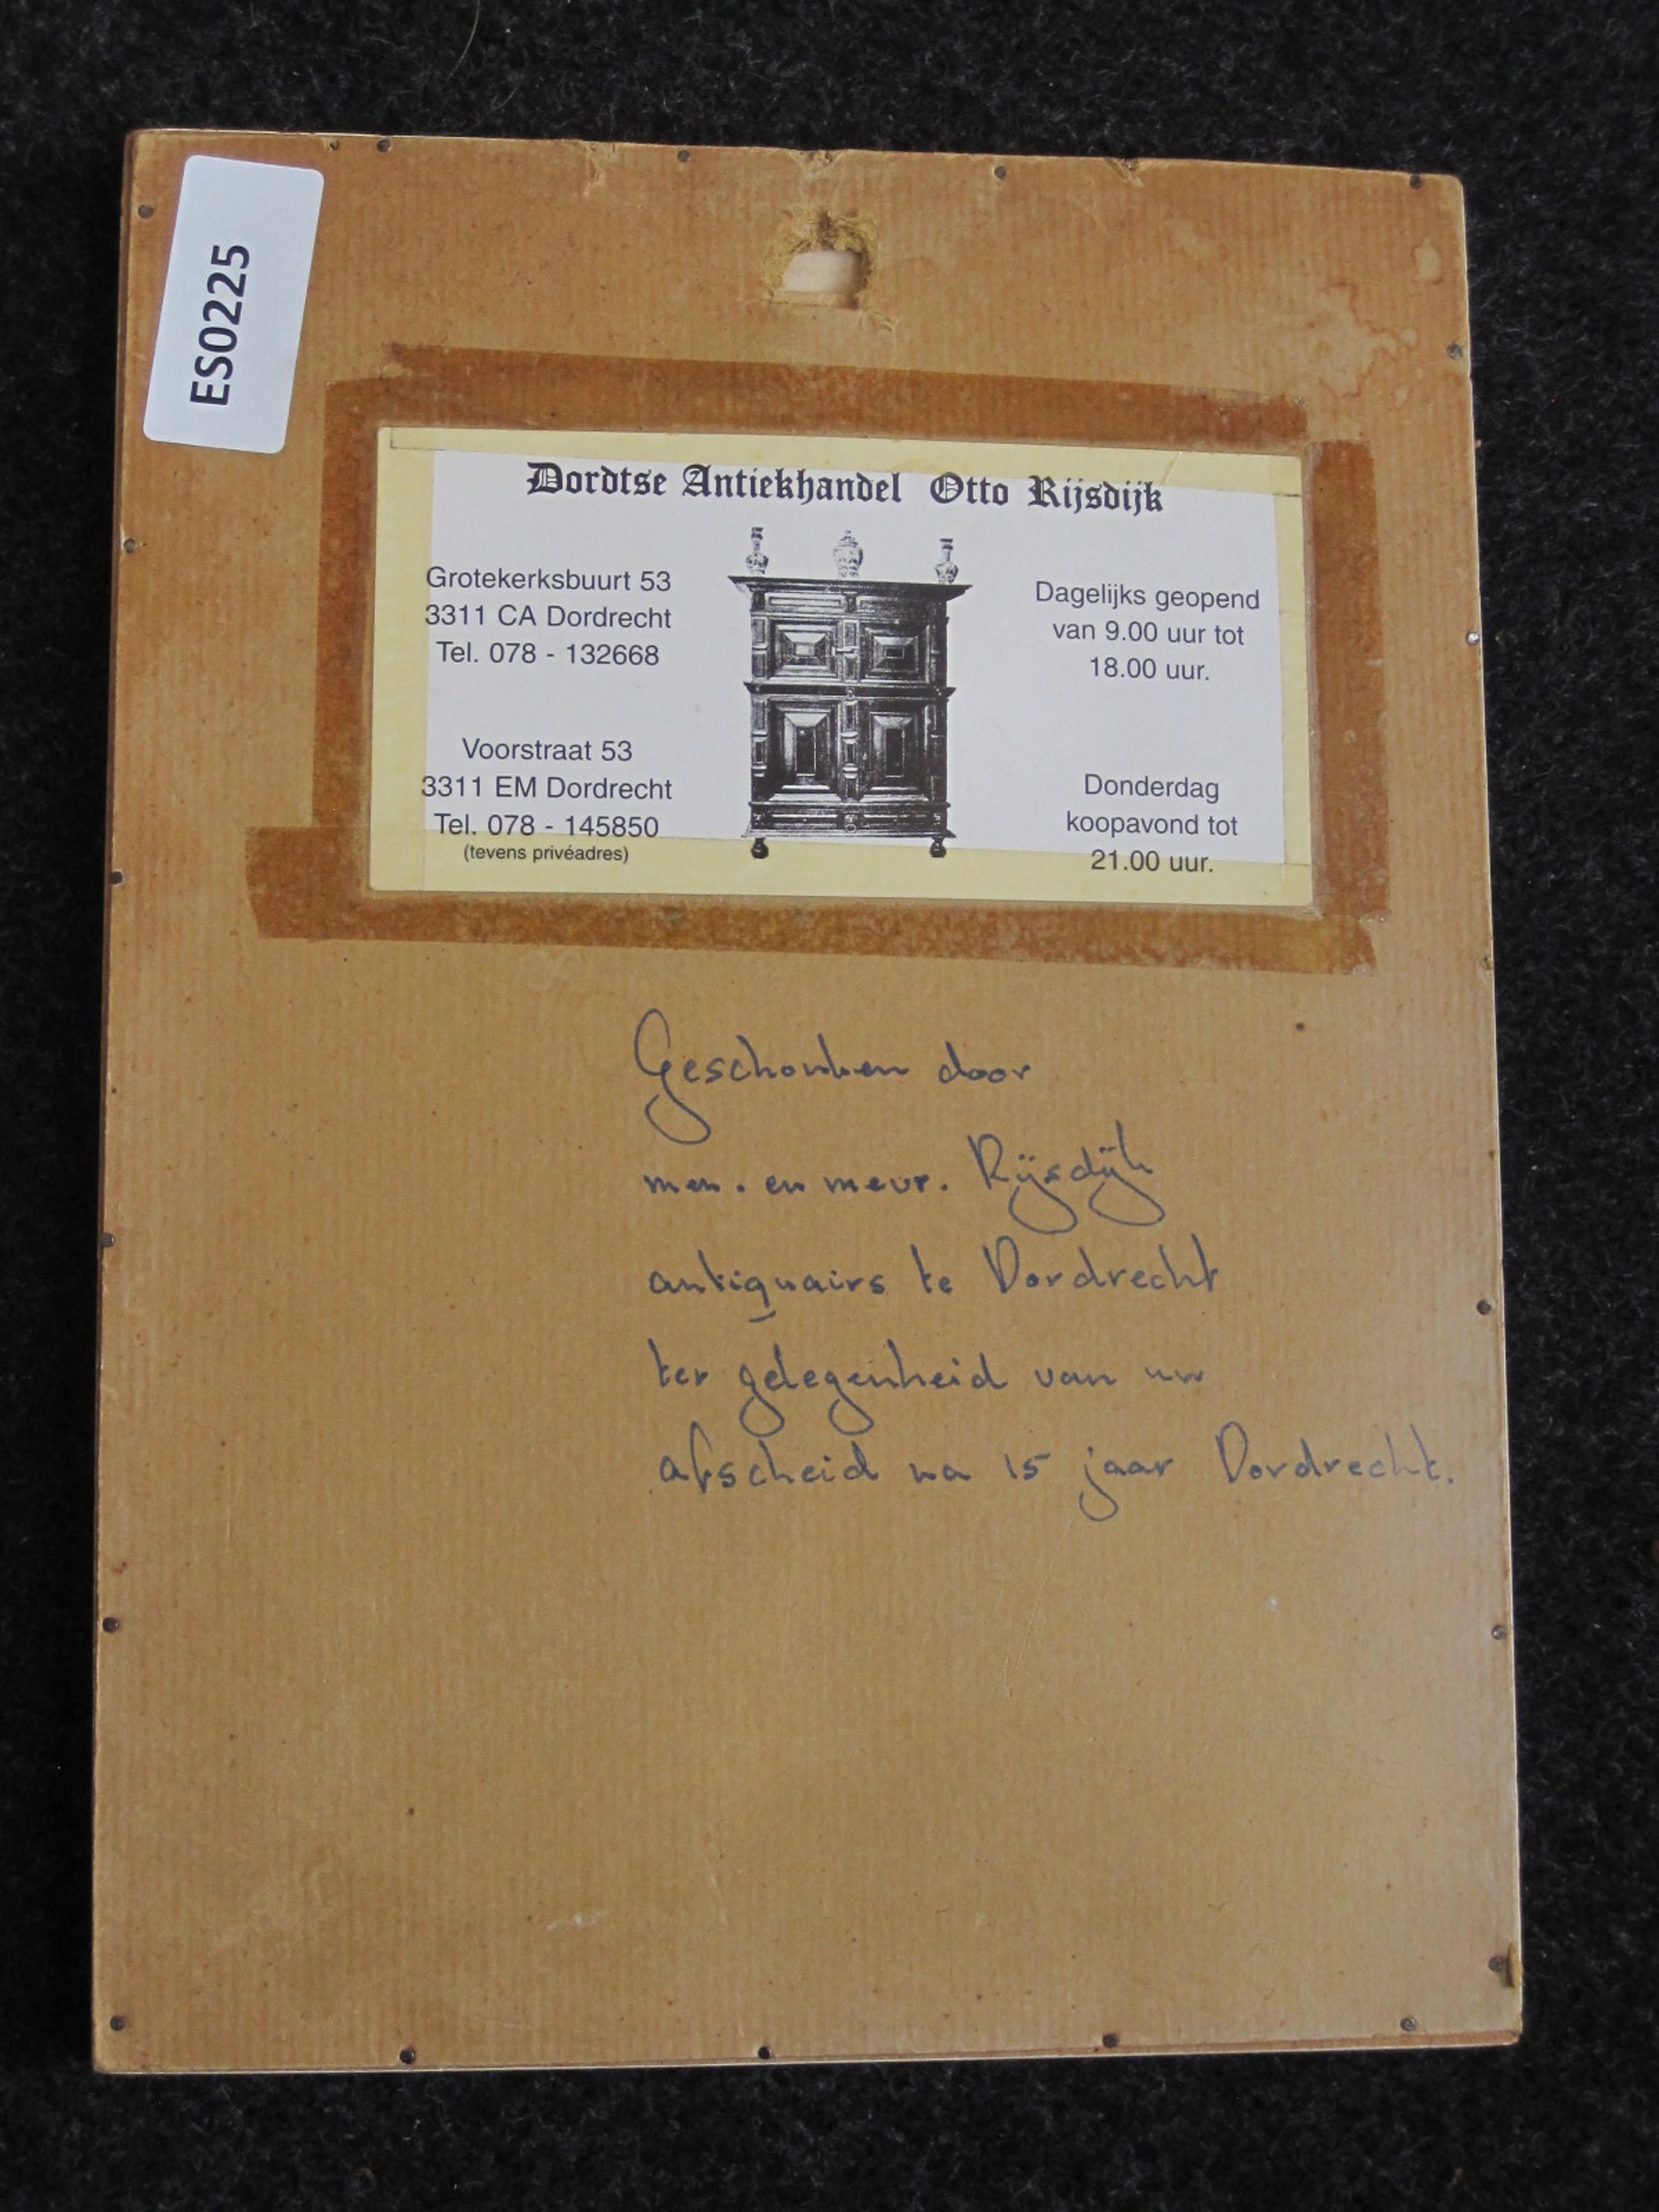 ES0225
Dordtse Antiekhandel Otto Rijsdijk
Grotekerksbuurt 53
3311 CA Dordrecht
Tel. 078 - 132668
Voorstraat 53
3311 EM Dordrecht
Tel. 078 - 145850
(tevens privéadres)
Dagelijks geopend
van 9.00 uur tot
18.00 uur.
Donderdag
koopavond tot
21.00 uur.
Geschonken door
en mevr. Rijsdijk
antiquairs te Dordrecht
ter gelegenheid van uw
afscheid na 15 jaar Dordrecht.